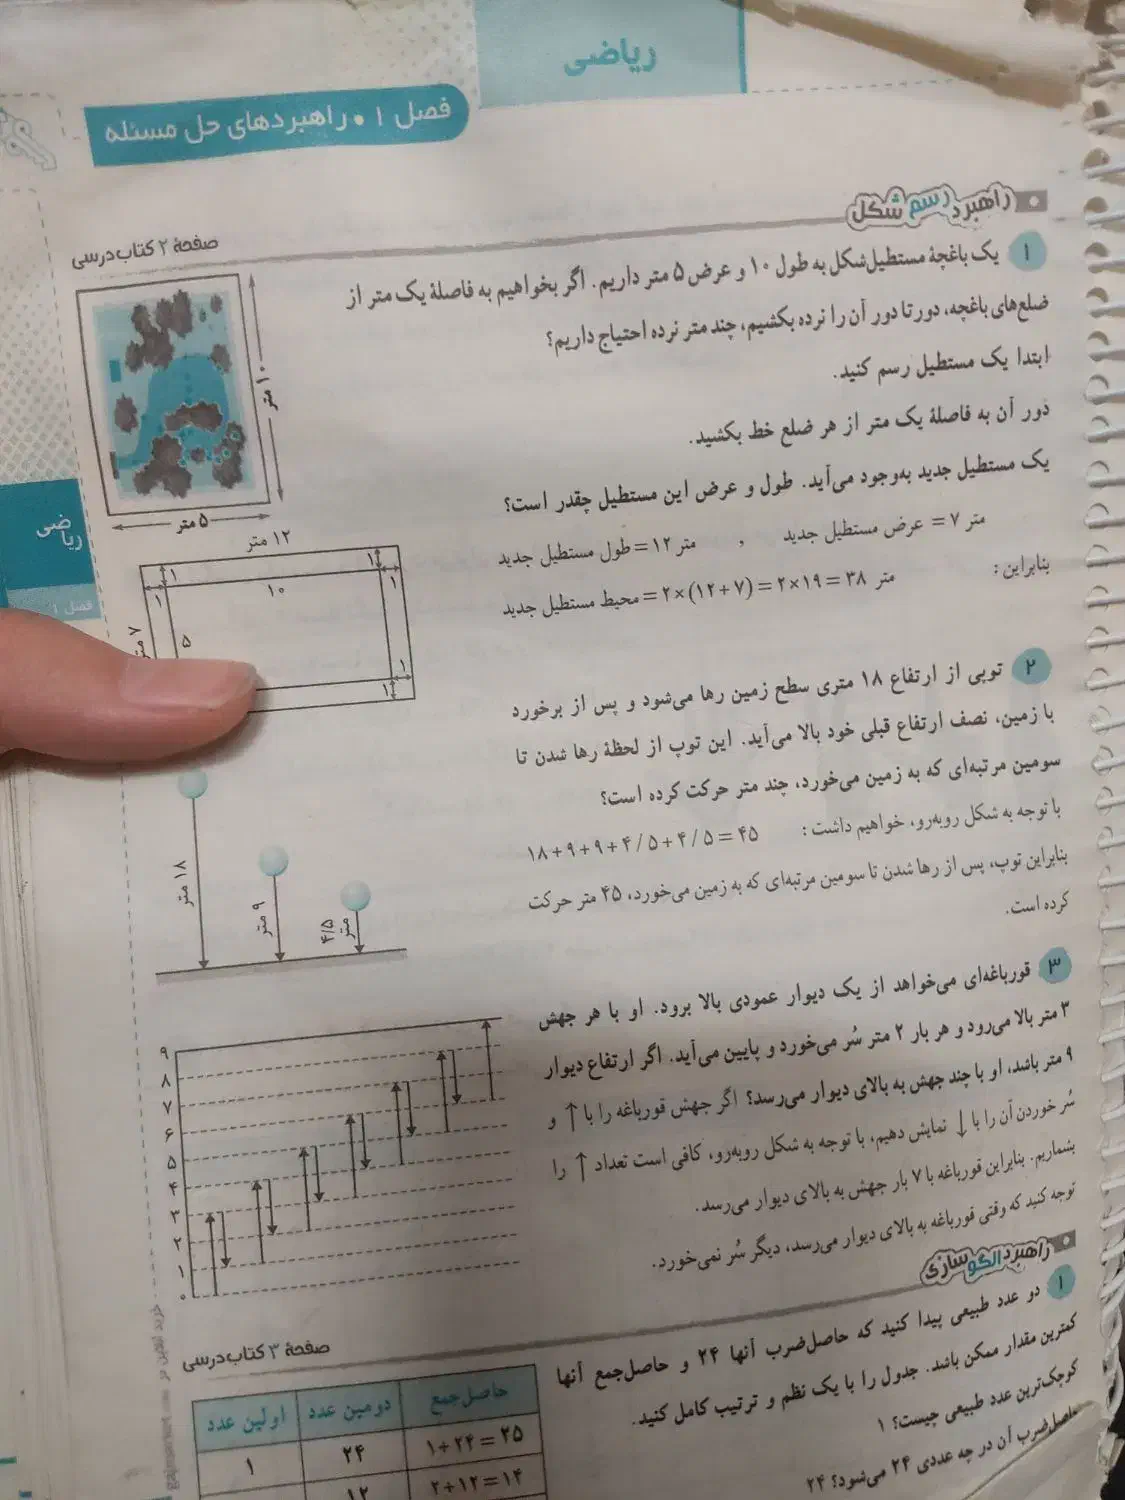 ریاضی
فصل ۱ • راهبردهای حل مسئله
راهبرد رسم شکل
صفحهٔ ۲ کتاب درسی
۱ یک باغچهٔ مستطیل‌شکل به طول ۱۰ و عرض ۵ متر داریم. اگر بخواهیم به فاصلهٔ یک متر از
ضلع‌های باغچه، دورتا دور آن را نرده بکشیم، چند متر نرده احتیاج داریم؟
ابتدا یک مستطیل رسم کنید.
دور آن به فاصلهٔ یک متر از هر ضلع خط بکشید.
یک مستطیل جدید به‌وجود می‌آید. طول و عرض این مستطیل چقدر است؟
متر ۷ = عرض مستطیل جدید , متر ۱۲ = طول مستطیل جدید
بنابراین : متر ۳۸ = ۱۹×۲ = (۷+۱۲)×۲ = محیط مستطیل جدید
۱۰ متر
۵ متر
۱۲ متر
۱
۱
۱
۱
۱۰
۷ متر
۵
۱
۱
ریاضی
فصل ۱
۲ توپی از ارتفاع ۱۸ متری سطح زمین رها می‌شود و پس از برخورد
با زمین، نصف ارتفاع قبلی خود بالا می‌آید. این توپ از لحظهٔ رها شدن تا
سومین مرتبه‌ای که به زمین می‌خورد، چند متر حرکت کرده است؟
با توجه به شکل روبه‌رو، خواهیم داشت : ۱۸+۹+۹+۴/۵+۴/۵=۴۵
بنابراین توپ، پس از رها شدن تا سومین مرتبه‌ای که به زمین می‌خورد، ۴۵ متر حرکت
کرده است.
۱۸ متر
۹ متر
۴/۵ متر
۳ قورباغه‌ای می‌خواهد از یک دیوار عمودی بالا برود. او با هر جهش
۳ متر بالا می‌رود و هر بار ۲ متر سُر می‌خورد و پایین می‌آید. اگر ارتفاع دیوار
۹ متر باشد، او با چند جهش به بالای دیوار می‌رسد؟ اگر جهش قورباغه را با ↑ و
سُر خوردن آن را با ↓ نمایش دهیم، با توجه به شکل روبه‌رو، کافی است تعداد ↑ را
بشماریم. بنابراین قورباغه با ۷ بار جهش به بالای دیوار می‌رسد.
توجه کنید که وقتی قورباغه به بالای دیوار می‌رسد، دیگر سُر نمی‌خورد.
۹
۸
۷
۶
۵
۴
۳
۲
۱
۰
راهبرد الگوسازی
صفحهٔ ۳ کتاب درسی
۱ دو عدد طبیعی پیدا کنید که حاصل‌ضرب آنها ۲۴ و حاصل‌جمع آنها
کمترین مقدار ممکن باشد. جدول را با یک نظم و ترتیب کامل کنید.
کوچک‌ترین عدد طبیعی چیست؟ ۱
حاصل‌ضرب آن در چه عددی ۲۴ می‌شود؟ ۲۴
اولین عدد دومین عدد حاصل‌جمع
۱ ۲۴ ۱+۲۴=۲۵
۱۲ ۲+۱۲=۱۴
خرید آنلاین در